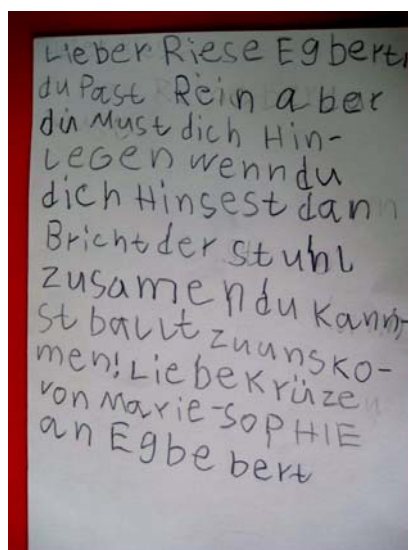 Lieber Riese Egbert,
du Past Rein aber
du Must dich Hin-
LEGEN wenn du
dich Hinsest dann
Bricht der stuhl
zusamen du kann-
st balit zu uns ko-
men! Liebe Krüze
von Marie-SOPHIE
an Egbe bert